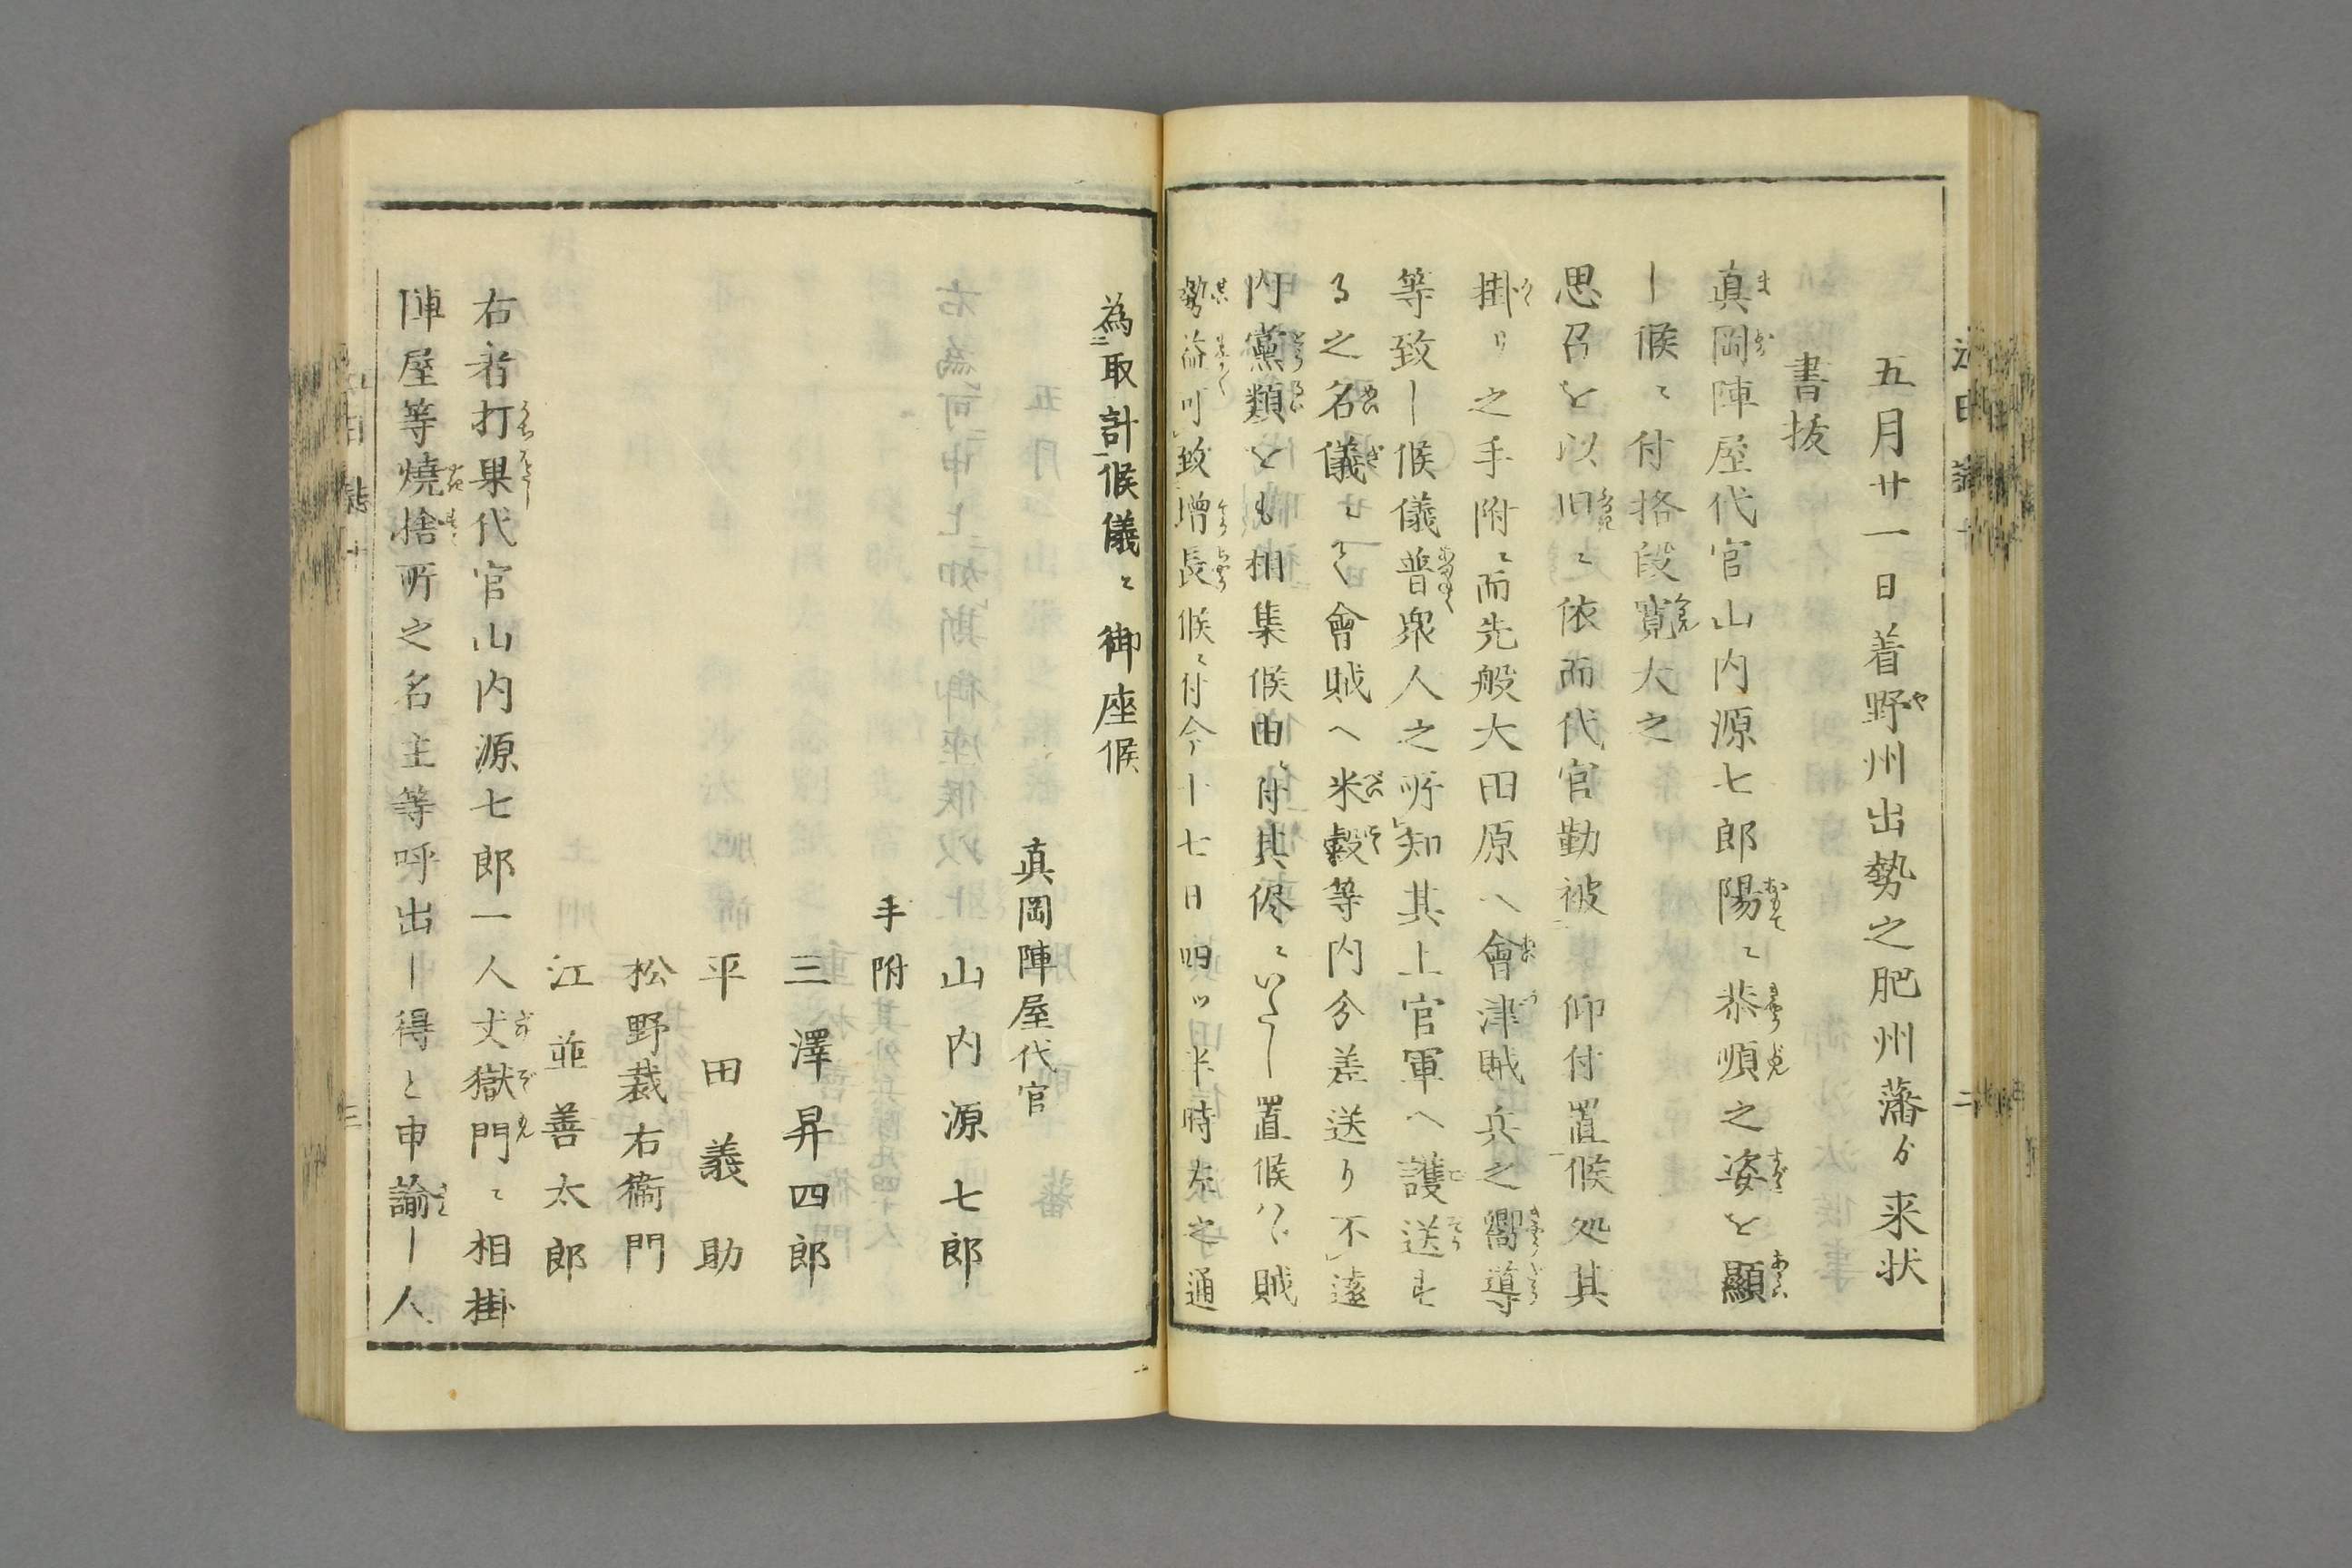 五月廿一日着野州出勢之肥州藩ゟ来状
書抜
真岡陣屋代官山内源七郎陽ニ恭順之姿を顕
し候ニ付格段寛大之
思召を以旧ニ依而代官勤被仰付置候処其
掛リ之手附ニ而先般大田原へ會津賊兵之嚮導
等致し候儀普衆人之所知其上官軍へ護送す
る之名儀ニて會賊へ米穀等内分差送り不遠
内黨類とも相集候由ニ付其侭ニいたし置候ハヾ賊
勢益可致増長候ニ付今十七日四ツ半時左之通
為取計候儀ニ御座候
真岡陣屋代官
山内源七郎
手附
三澤昇四郎
平田義助
松野裁右衛門
江並善太郎
右者打果代官山内源七郎一人丈獄門ニ相掛
陣屋等焼捨所之名主等呼出し得と申諭し人